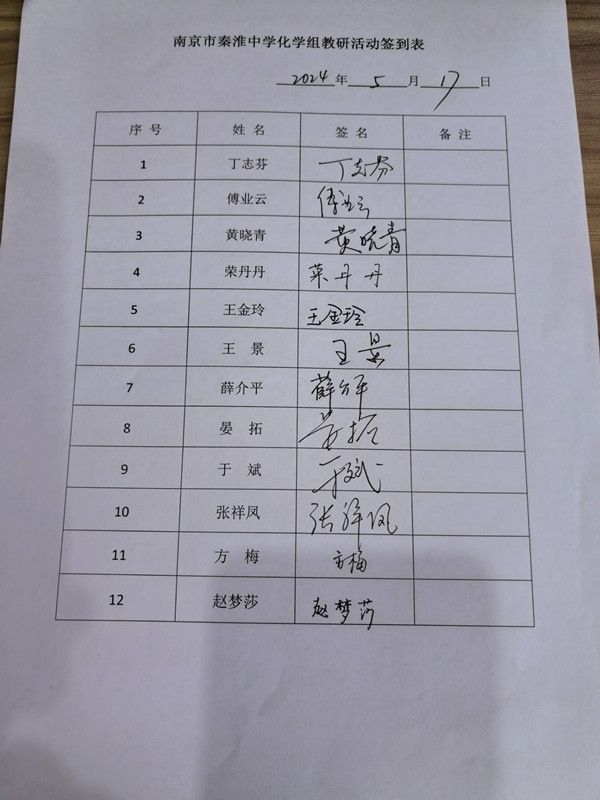 南京市秦淮中学化学组教研活动签到表
2024 年 5 月 17 日
序 号 姓 名 签 名 备 注
1 丁志芬 丁志芬
2 傅业云 傅业云
3 黄晓青 黄晓青
4 荣丹丹 荣丹丹
5 王金玲 王金玲
6 王 景 王景
7 薛介平 薛介平
8 晏 拓 晏拓
9 于 斌 于斌
10 张祥凤 张祥凤
11 方 梅 方梅
12 赵梦莎 赵梦莎